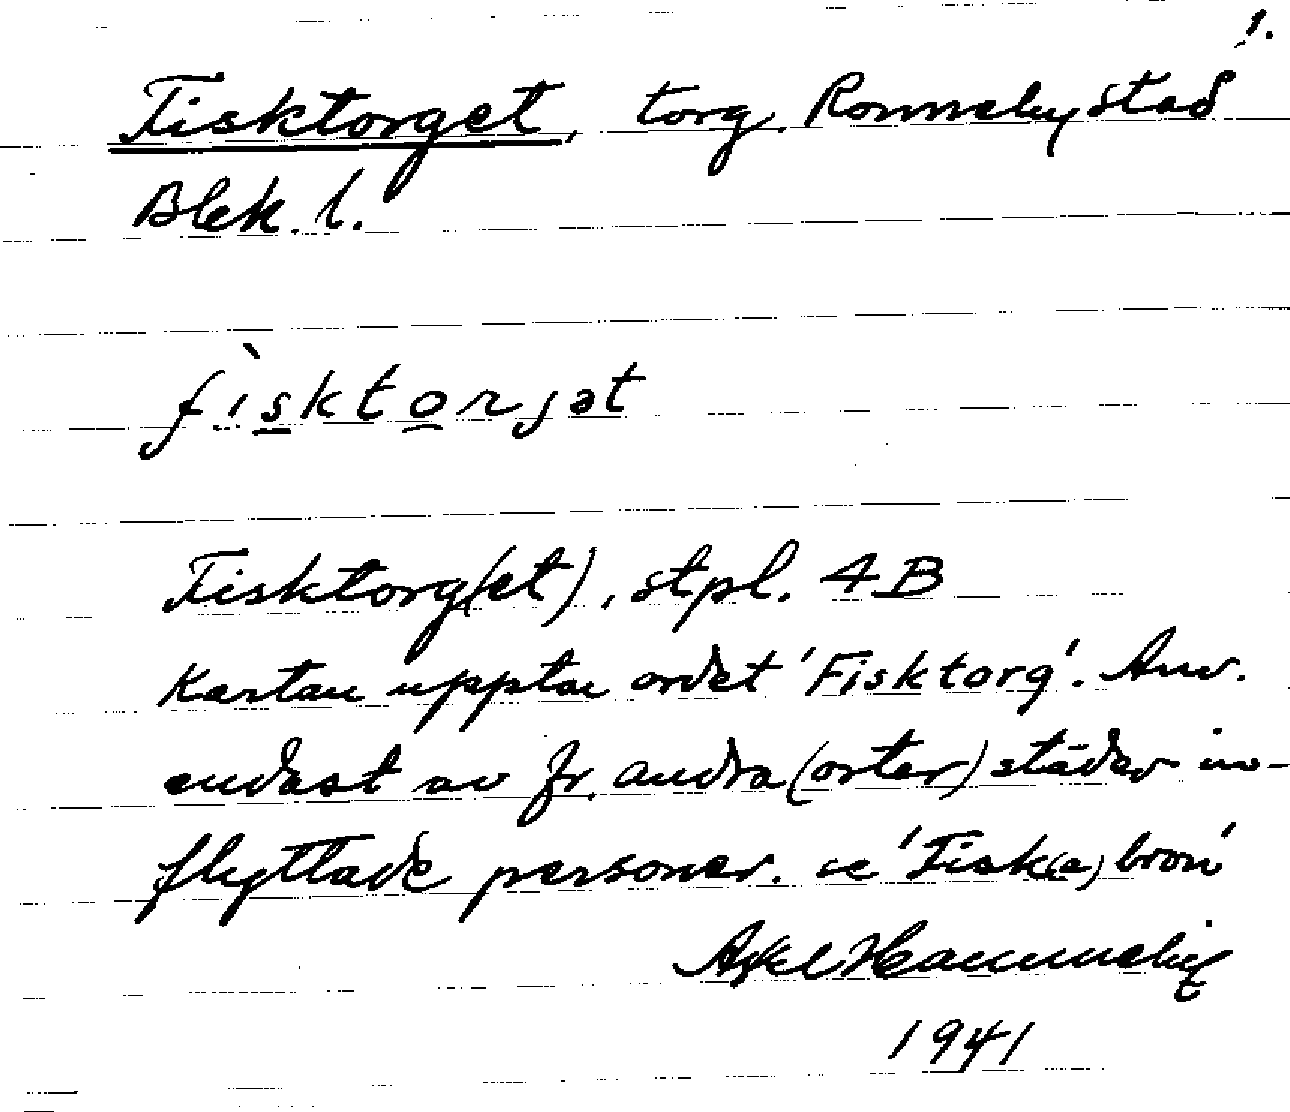 1.
Fisktorget, torg. Ronneby stad
Blek. l.
fìsktorjət
Fisktorg(et), stpl. 4B
Kartan upptar ordet 'Fisktorg'. Anv.
endast av fr. andra (orter) städer in-
flyttade personer. se 'Fisk(a)bron'
Axel
1941